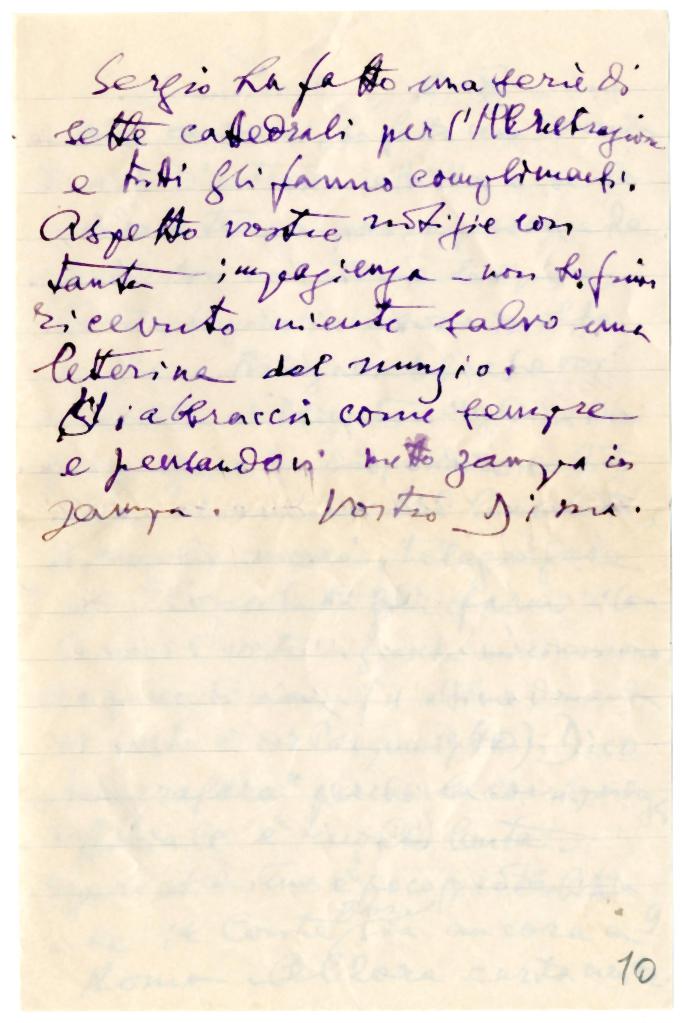 Sergio ha fatto una serie di
sette cattedrali per l'
e tutti gli fanno complimenti.
Aspetto vostre notizie con
tanta impazienza – non ho finora
ricevuto niente salvo una
letterina del nunzio.
Vi abbraccio come sempre
e pensandovi metto zampa in
zampa. Vostro
10